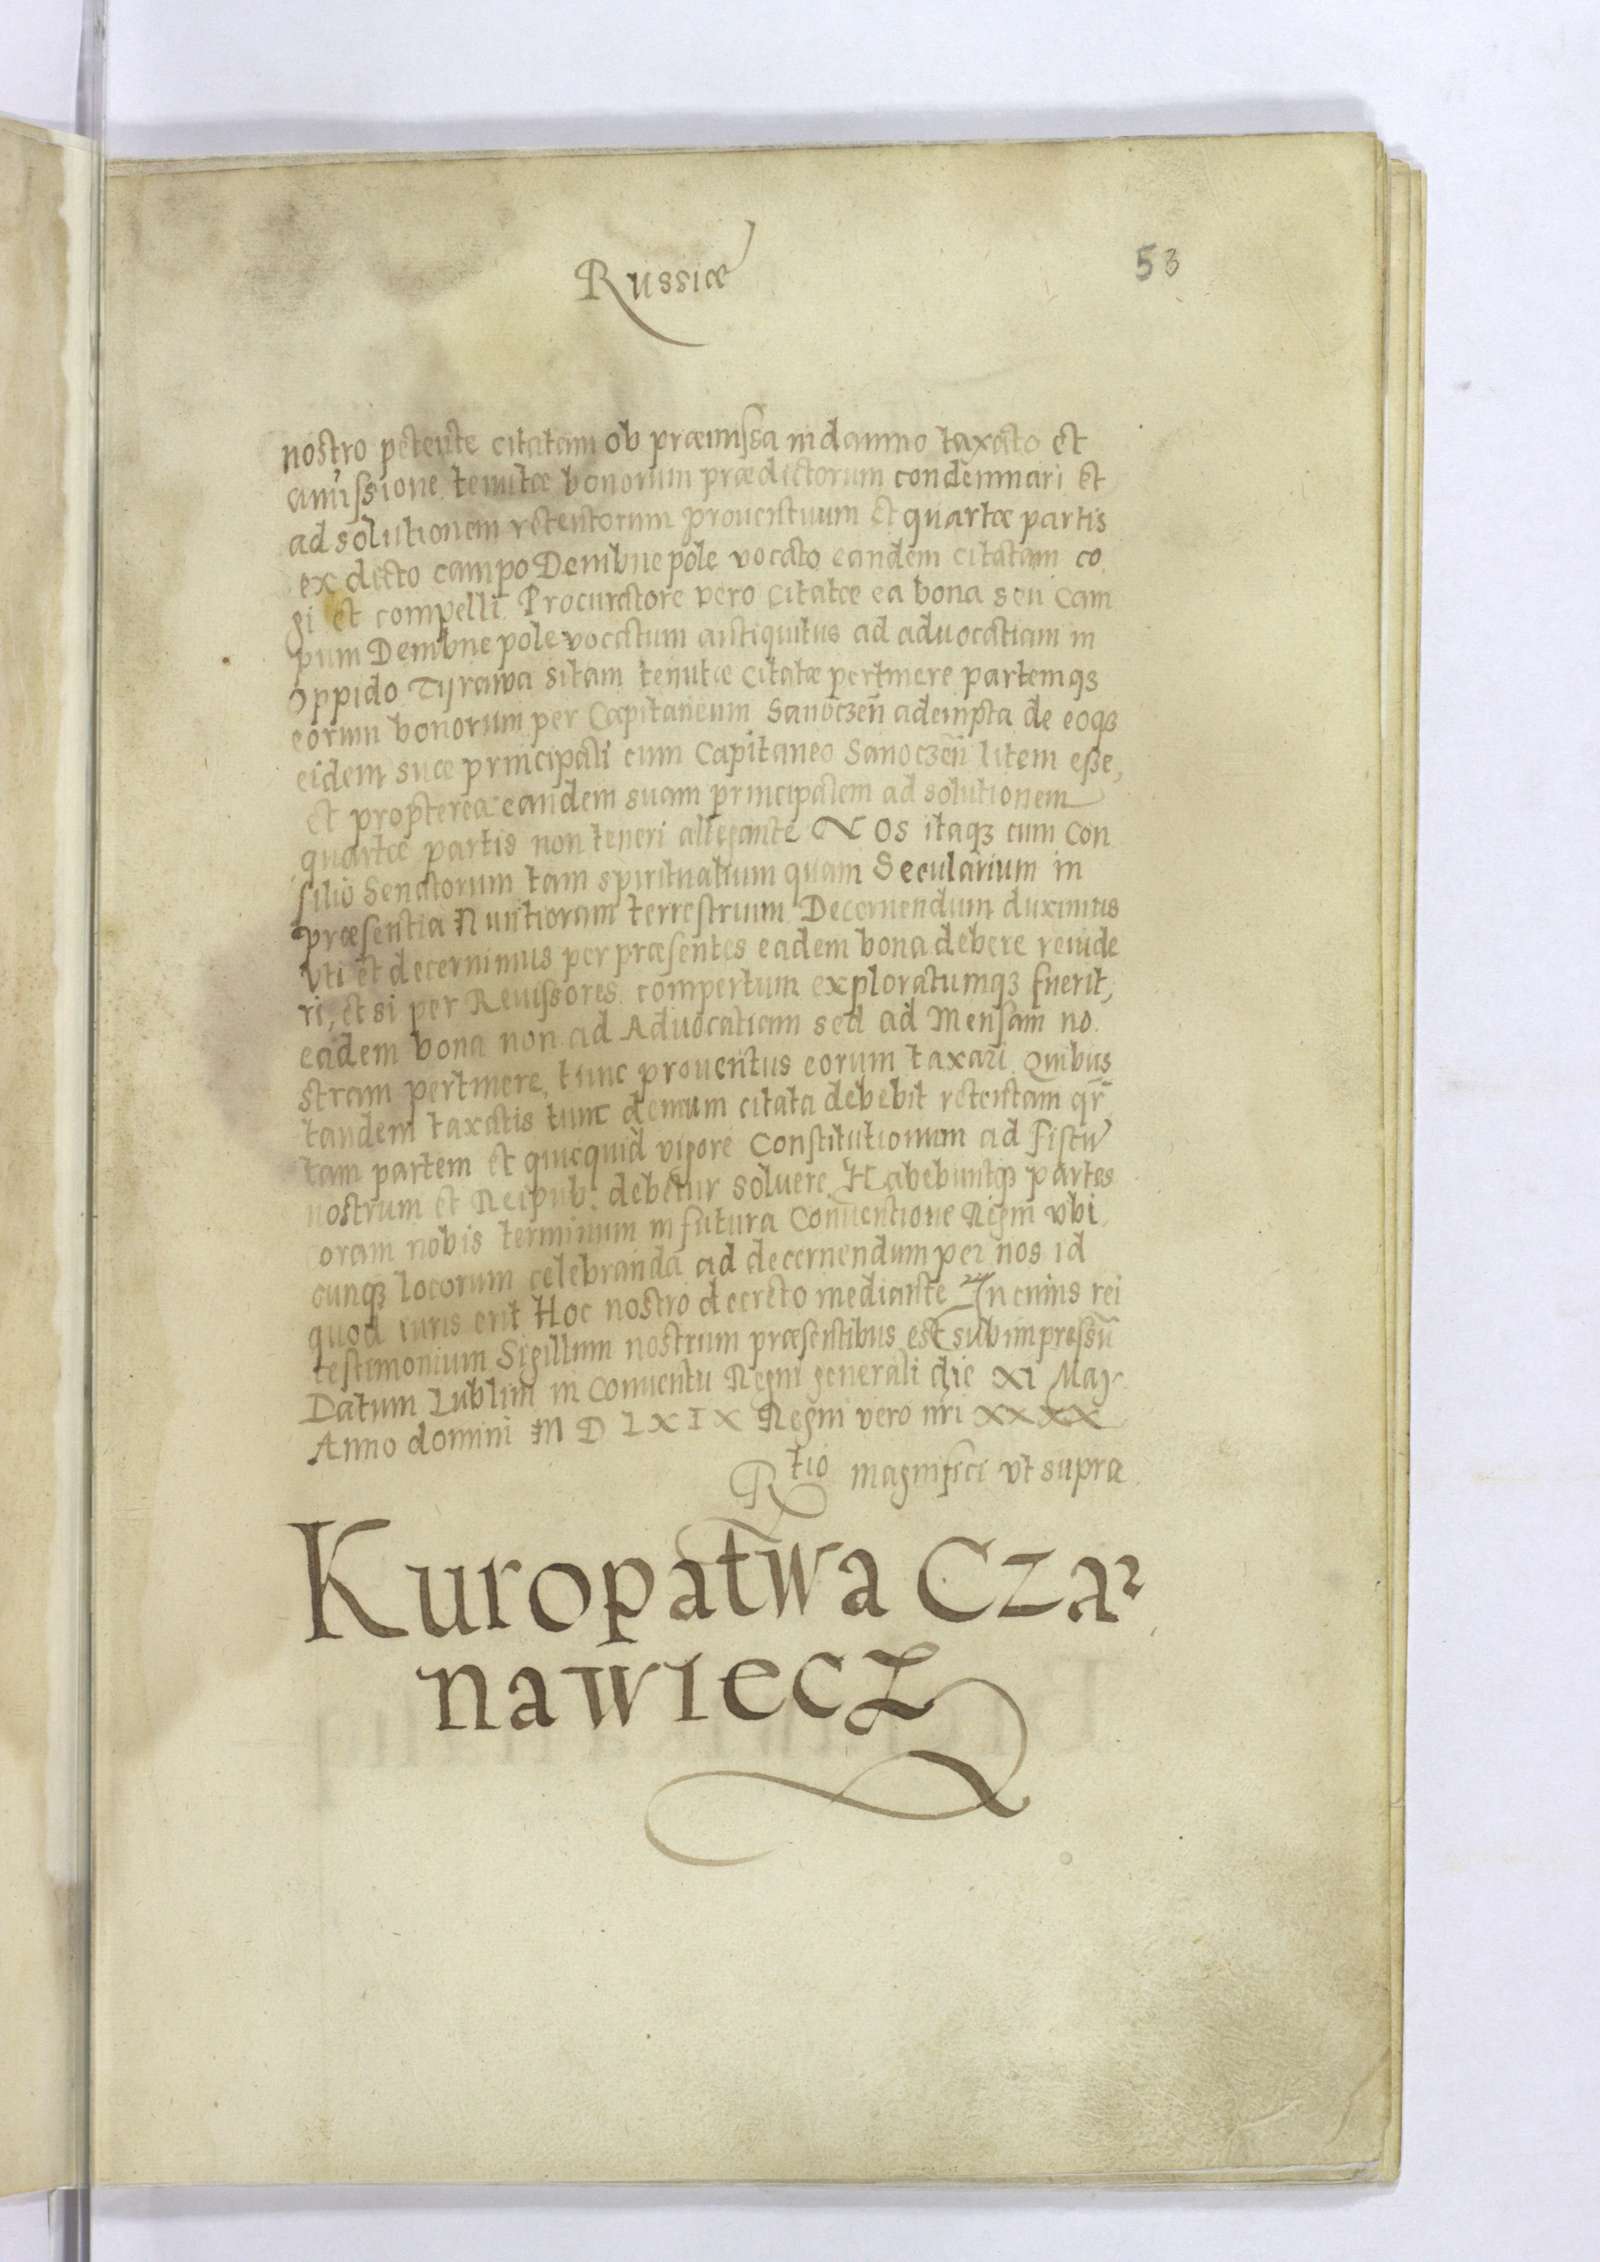 Russiæ
53
nostro petente citatam ob præmissa in damno taxato et
amissione tenutæ bonorum prædictorum condemnari et
ad solutionem retentorum prouentuum et quartæ partis
ex dicto campo Dembne pole vocato eandem citatam co
gi et compelli. Procuratore vero citatæ ea bona seu Cam
pum Dembne pole vocatum antiquitus ad aduocatiam in
oppido Tyrawa sitam tenutæ citatæ pertinere partemqȝ
eorum bonorum per Capitaneum Sanoczeñ adempta de eoqȝ
eidem suæ principali cum Capitaneo Sanoczeñ litem esse,
Et propterea eandem suam principalem ad solutionem
quartæ partis non teneri allegante Nos itaqȝ cum Con
silio Senatorum tam spiritualium quam Secularium in
præsentia Nuntiorum terrestrium Decernendum duximus
vti et decernimus per præsentes eadem bona debere reuide
ri, et si per Reuissores compertum exploratumqȝ fuerit,
eadem bona non ad Aduocatiam sed ad Mensam no
stram pertinere, tunc prouentus eorum taxari Quibus
tandem taxatis tunc demum citata debebit retentam qr̃
tam partem et quicquid vigore Constitutionum ad Fiscū
nostrum et Reipub: debetur soluere. Habebuntqȝ partes
coram nobis terminum in futura Conuentione Regni vbi
cunqȝ locorum celebranda ad decernendum per nos id
quod iuris erit Hoc nostro decreto mediante In cuius rei
testimonium Sigillum nostrum præsentibus est subimpressū
Datum Lublini in Conuentu Regni generali die XI Maij
Anno domini M D L X I X Regni vero nr̃i XXXX
Rtio magnifici vt supra
Kuropatwa Czar
nawiecz